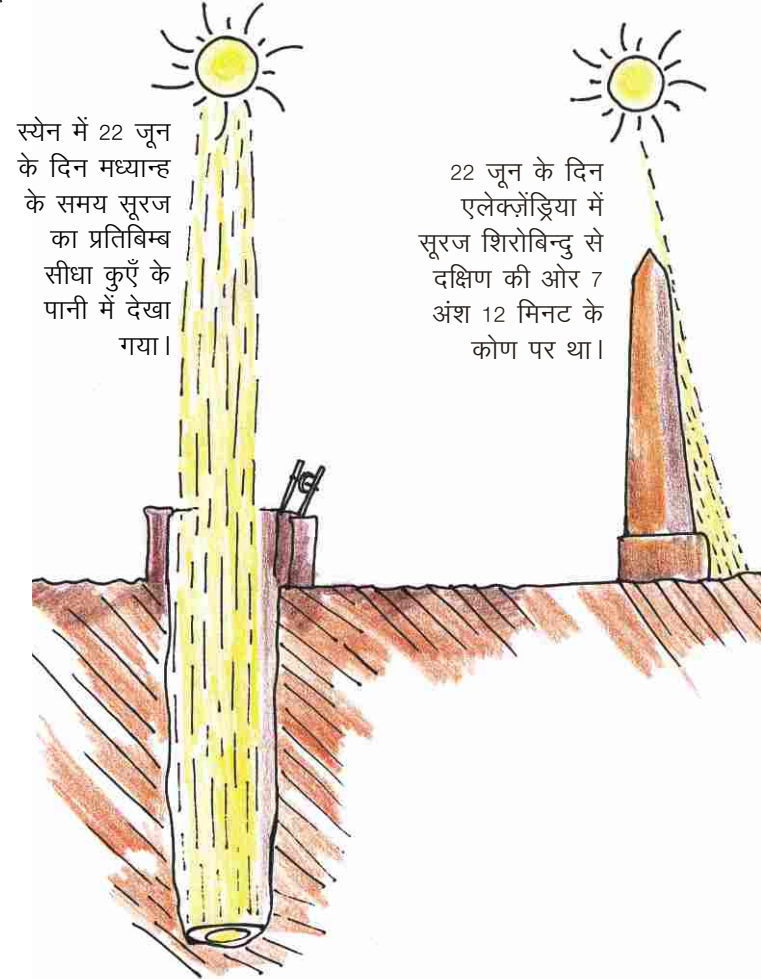 स्येन में 22 जून
के दिन मध्यान्ह
के समय सूरज
का प्रतिबिम्ब
सीधा कुएँ के
पानी में देखा
गया।
22 जून के दिन
एलेक्ज़ेंड्रिया में
सूरज शिरोबिन्दु से
दक्षिण की ओर 7
अंश 12 मिनट के
कोण पर था।